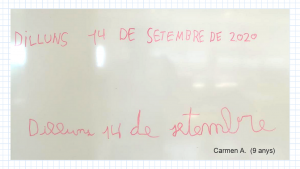 DILLUNS 14 DE SETEMBRE DE 2020
Dilluns 14 de setembre
Carmen A. (9 anys)